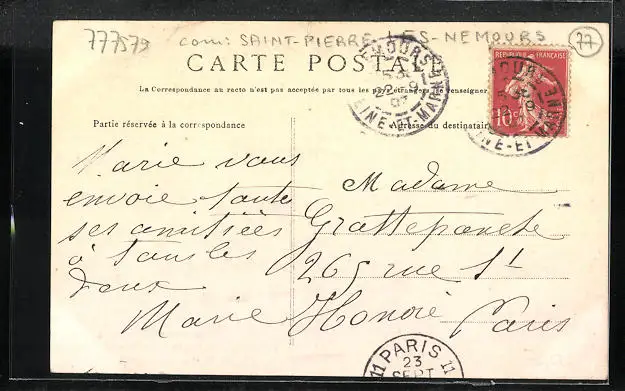 777579 com: SAINT-PIERRE-LES-NEMOURS 77
CARTE POSTALE
La Correspondance au recto n'est pas acceptée par tous les pays étrangers (se renseigner
Partie réservée à la correspondance
Adresse du destinataire
REPUBLIQUE FRANÇAISE
10
NEMOURS
22 -9
07
SEINE-ET-MARNE
Marie vous
envoie toutes
ses amitiées
à tous les
deux
Marie
Madame
Grattepanche
265 rue St
Honoré Paris
11 PARIS 11
23
SEPT